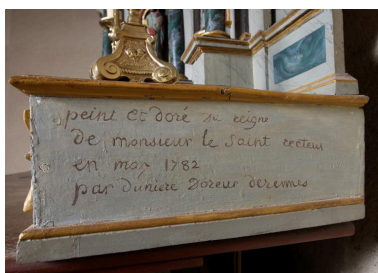 peint et doré su reigne
de monsieur le saint recteur
en may 1782
par duniere doreur derennes